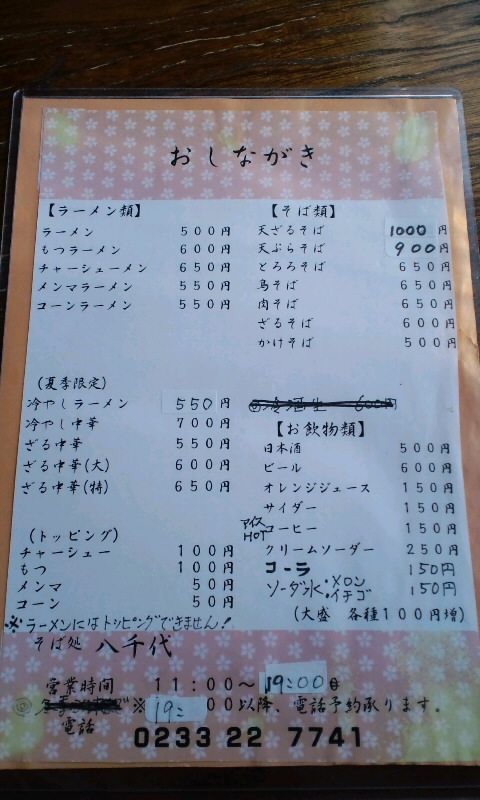 おしながき
【ラーメン類】
ラーメン 500円
もつラーメン 600円
チャーシューメン 650円
メンマラーメン 550円
コーンラーメン 550円
(夏季限定)
冷やしラーメン 550円
冷やし中華 700円
ざる中華 550円
ざる中華(大) 600円
ざる中華(特) 650円
(トッピング)
チャーシュー 100円
もつ 100円
メンマ 50円
コーン 50円
※ラーメンにはトッピングできません!
【そば類】
天ざるそば 1000円
天ぷらそば 900円
とろろそば 650円
鳥そば 650円
肉そば 650円
ざるそば 600円
かけそば 500円
600円
【お飲物類】
日本酒 500円
ビール 600円
オレンジジュース 150円
サイダー 150円
アイス
HOT
コーヒー 150円
クリームソーダー 250円
コーラ 150円
ソーダ水・メロン
・イチゴ 150円
(大盛 各種100円増)
そば処 八千代
営業時間 11:00〜19:00
※19:00以降、電話予約承ります。
電話
0233 22 7741